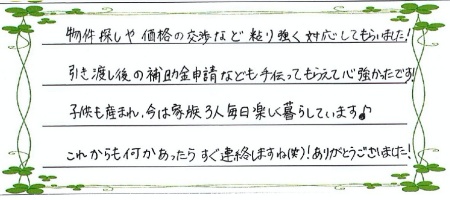 物件探しや価格の交渉など粘り強く対応してもらいました!
引き渡し後の補助金申請なども手伝ってもらえて心強かったです!
子供も産まれ、今は家族3人毎日楽しく暮らしています♪
これからも何かあったらすぐ連絡しますね(笑)!ありがとうございました!